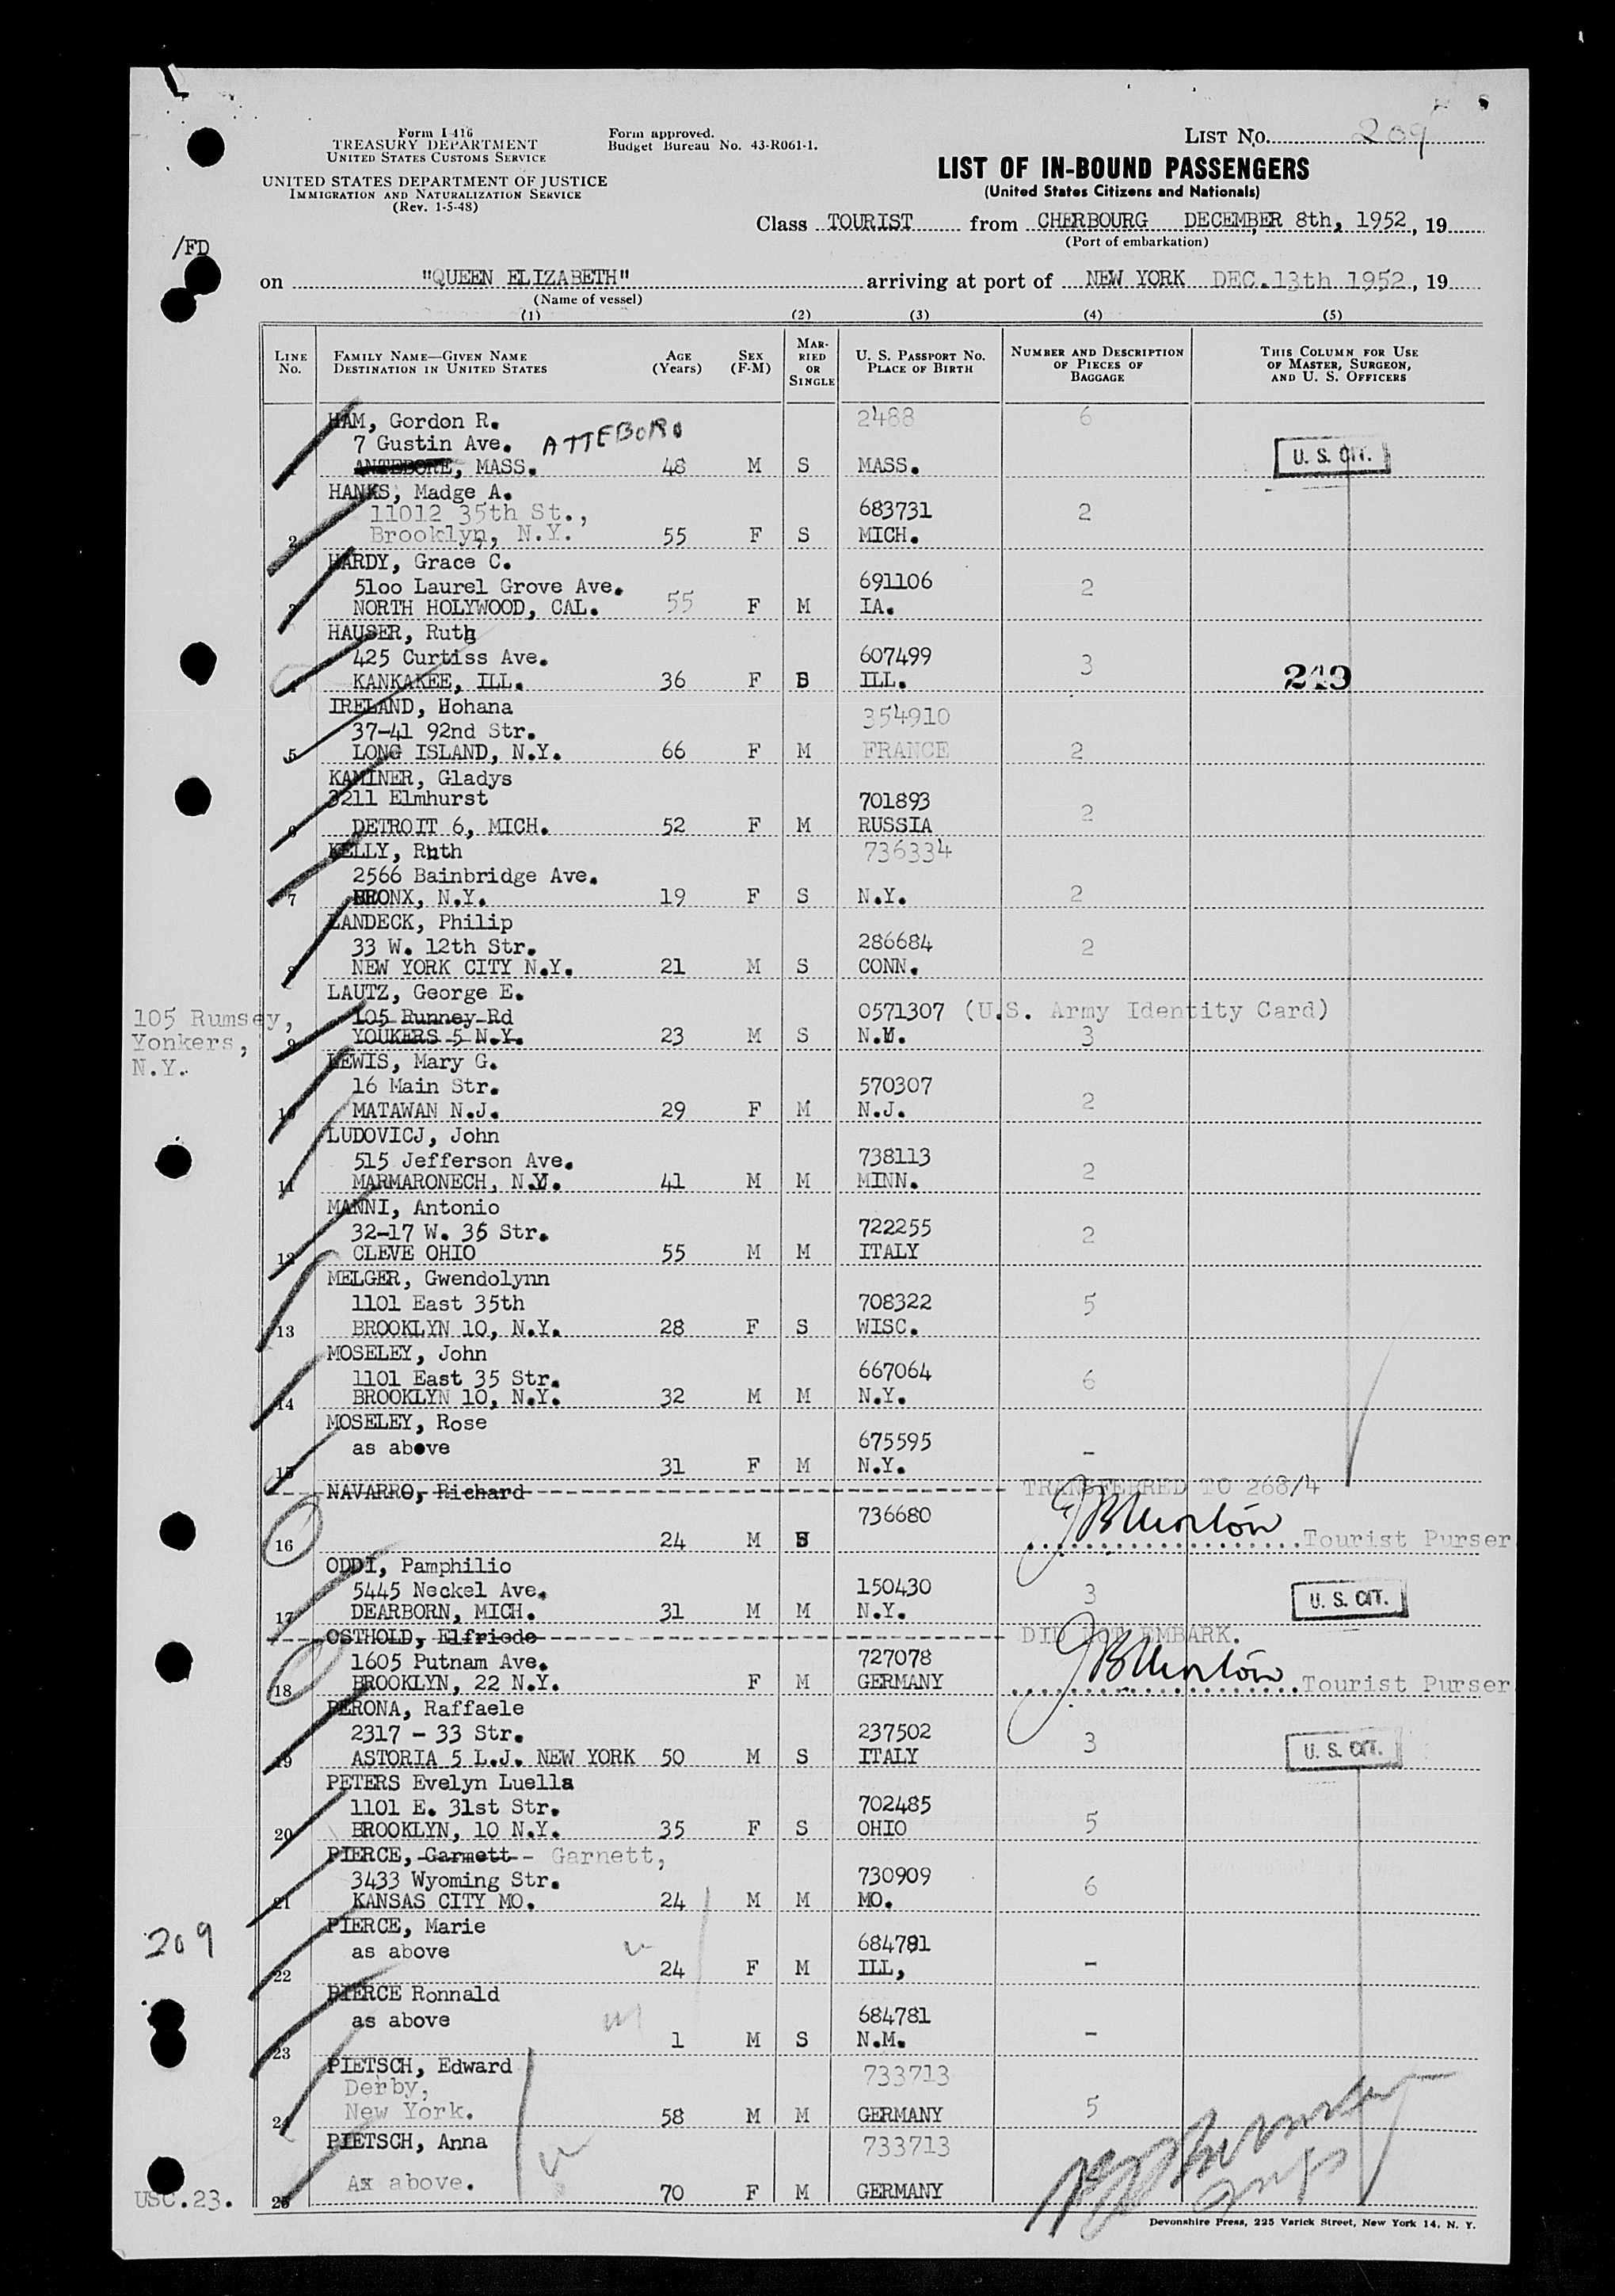 Form I 416
TREASURY DEPARTMENT
UNITED STATES CUSTOMS SERVICE
UNITED STATES DEPARTMENT OF JUSTICE
IMMIGRATION AND NATURALIZATION SERVICE
(Rev. 1-5-48)
Form approved.
Budget Bureau No. 43-R061-1.
LIST NO. 209
LIST OF IN-BOUND PASSENGERS
(United States Citizens and Nationals)
Class TOURIST from CHERBOURG DECEMBER 8th, 1952, 19
(Port of embarkation)
/FD
on "QUEEN ELIZABETH" arriving at port of NEW YORK DEC.13th 1952, 19
(Name of vessel)
(1) (2) (3) (4) (5)
LINE NO.
FAMILY NAME—GIVEN NAME
DESTINATION IN UNITED STATES
AGE (Years)
SEX (F-M)
MARRIED OR SINGLE
U. S. PASSPORT NO.
PLACE OF BIRTH
NUMBER AND DESCRIPTION OF PIECES OF BAGGAGE
THIS COLUMN FOR USE OF MASTER, SURGEON, AND U. S. OFFICERS
HAM, Gordon R. 2488 6
7 Gustin Ave. ATTEBORO
ANTEBORE, MASS. 48 M S MASS. U. S. CIT.
HANKS, Madge A.
11012 35th St., 683731 2
2 Brooklyn, N.Y. 55 F S MICH.
HARDY, Grace C.
5100 Laurel Grove Ave. 691106 2
3 NORTH HOLYWOOD, CAL. 55 F M IA.
HAUSER, Ruth
425 Curtiss Ave. 607499 3
KANKAKEE, ILL. 36 F ILL. 249
IRELAND, Hohana
37-41 92nd Str. 354910
5 LONG ISLAND, N.Y. 66 F M FRANCE 2
KAMINER, Gladys
3211 Elmhurst 701893 2
6 DETROIT 6, MICH. 52 F M RUSSIA
KELLY, Ruth 736334
2566 Bainbridge Ave.
7 BRONX, N.Y. 19 F S N.Y. 2
LANDECK, Philip
33 W. 12th Str. 286684 2
8 NEW YORK CITY N.Y. 21 M S CONN.
LAUTZ, George E.
105 Rumsey, Yonkers, N.Y.
105 Runney Rd 0571307 (U.S. Army Identity Card)
9 YOUKERS 5 N.Y. 23 M S N.Y. 3
LEWIS, Mary G.
16 Main Str. 570307 2
10 MATAWAN N.J. 29 F M N.J.
LUDOVICJ, John
515 Jefferson Ave. 738113 2
11 MARMARONECH, N.Y. 41 M M MINN.
MANNI, Antonio
32-17 W. 35 Str. 722255 2
12 CLEVE OHIO 55 M M ITALY
MELGER, Gwendolynn
1101 East 35th 708322 5
13 BROOKLYN 10, N.Y. 28 F S WISC.
MOSELEY, John
1101 East 35 Str. 667064 6
14 BROOKLYN 10, N.Y. 32 M M N.Y.
MOSELEY, Rose
as above 675595 -
15 31 F M N.Y.
NAVARRO, Richard TRANSFERRED TO 268/4
736680
16 24 M S Tourist Purser
ODDI, Pamphilio
5445 Neckel Ave. 150430 3
17 DEARBORN, MICH. 31 M M N.Y. U. S. CIT.
OSTHOLD, Elfriede DID NOT EMBARK.
1605 Putnam Ave. 727078
18 BROOKLYN, 22 N.Y. F M GERMANY Tourist Purser
PERONA, Raffaele
2317 - 33 Str. 237502 3
19 ASTORIA 5 L.J. NEW YORK 50 M S ITALY U. S. CIT.
PETERS Evelyn Luella
1101 E. 31st Str. 702485 5
20 BROOKLYN, 10 N.Y. 35 F S OHIO
PIERCE, Garmett -- Garnett,
3433 Wyoming Str. 730909 6
21 KANSAS CITY MO. 24 M M MO.
PIERCE, Marie
209
as above 684781 -
22 24 F M ILL,
PIERCE Ronnald
as above 684781
23 1 M S N.M. -
PIETSCH, Edward 733713
Derby,
24 New York. 58 M M GERMANY 5
PIETSCH, Anna 733713
As above.
25 70 F M GERMANY
USC.23.
Devonshire Press, 225 Varick Street, New York 14, N. Y.